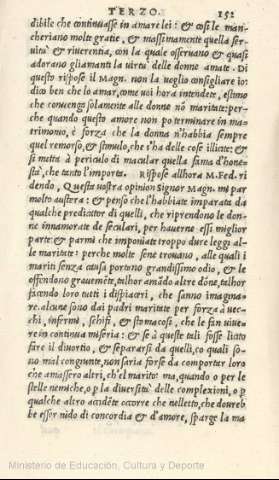 TERZO. 152
dibile che continuasse in amare lei: & così le man-
cheriano molte gratie, & massimamente quella ser-
uitù & riuerentia, con la quale osseruano & quasi
adorano gliamanti la uirtù delle donne amate. Di
questo rispose il Magn. non la uoglio consigliare io:
dico ben che lo amar, come uoi hora intendete, estimo
che conuenga solamente alle donne nō maritate: per-
che quando questo amore non po terminare in ma-
trimonio, è forza che la donna n'habbia sempre
quel remorso, & stimulo, che s'ha delle cose illicite: &
si metta à periculo di macular quella fama d'hone-
stà, che tanto l'importa. Rispose allhora M. Fed. ri
dendo, Questa uostra opinion Signor Magn. mi par
molto austera: & penso che l'habbiate imparata da
qualche predicator di quelli, che riprendono le don-
ne innamorate de seculari, per hauerne essi miglior
parte: & parmi che imponiate troppo dure leggi al-
le maritate: perche molte sene trouano, alle quali i
mariti senza causa portano grandissimo odio, & le
offendono grauemēte, talhor amādo altre dōne, talhor
facendo loro tutti i dispiaceri, che sanno imagina-
re. alcune sono dai padri maritate per forza à uec-
chi, infermi, schifi, & stomacosi, che le fan uiue-
re in continua miseria: & se à queste tali fosse licito
fare il diuortio, & separarsi da quelli, co quali so-
no mal congiunte, non saria forse da comportar loro
che amassero altri, ch'el marito: ma, quando o per le
stelle nemiche, o p la diuersità delle complexioni, o p
qualche altro accidēte occorre che nelletto, che doureb-
be esser nido di concordia & d'amore, sparge la ma
Ministerio de Educación, Cultura y Deporte